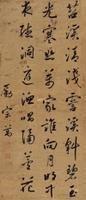 苕溪清淺霅溪斜碧玉
光寒照萬家誰向月明終
夜聽洞庭漁唱隔蘆花
勵宗萬